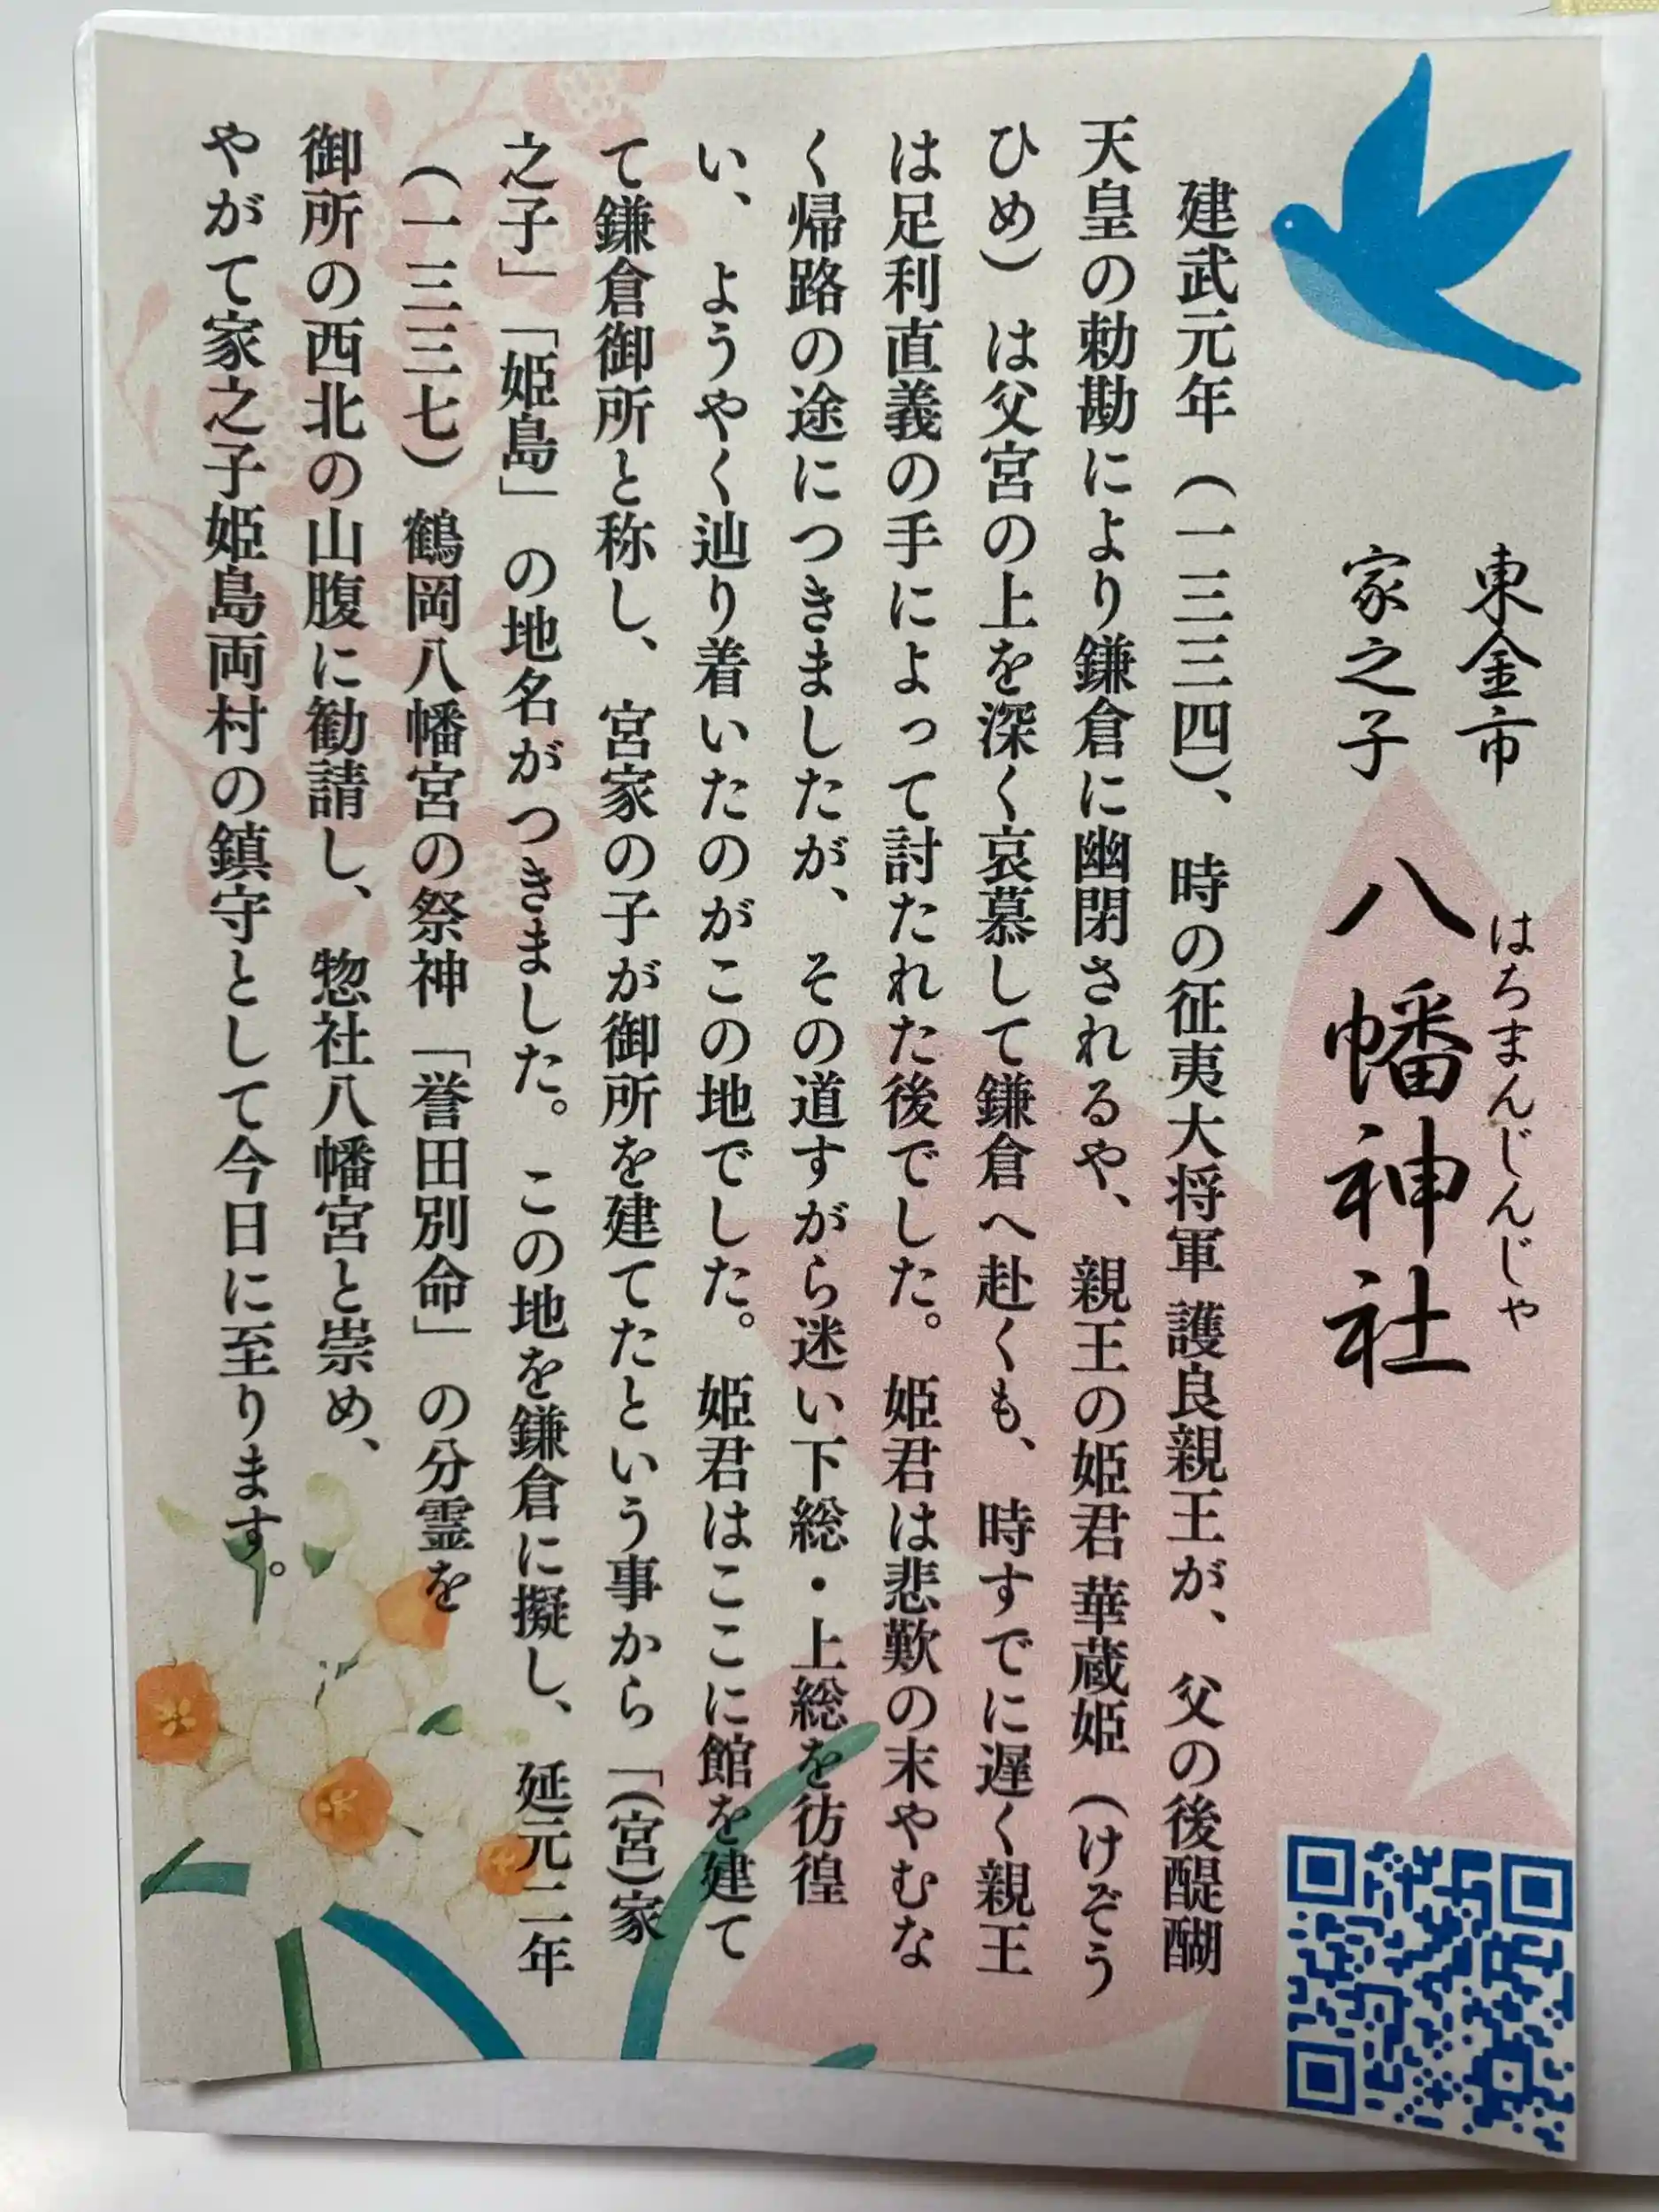 東金市
家之子
はちまんじんじゃ
八幡神社
建武元年（一三三四）、時の征夷大将軍 護良親王が、父の後醍醐
天皇の勅勘により鎌倉に幽閉されるや、親王の姫君 華蔵姫（けぞう
ひめ）は父宮の上を深く哀慕して鎌倉へ赴くも、時すでに遅く親王
は足利直義の手によって討たれた後でした。姫君は悲歎の末やむな
く帰路の途につきましたが、その道すがら迷い下総・上総を彷徨
い、ようやく辿り着いたのがこの地でした。姫君はここに館を建て
て鎌倉御所と称し、宮家の子が御所を建てたという事から「(宮)家
之子」「姫島」の地名がつきました。この地を鎌倉に擬し、延元二年
（一三三七）鶴岡八幡宮の祭神「誉田別命」の分霊を
御所の西北の山腹に勧請し、惣社八幡宮と崇め、
やがて家之子姫島両村の鎮守として今日に至ります。